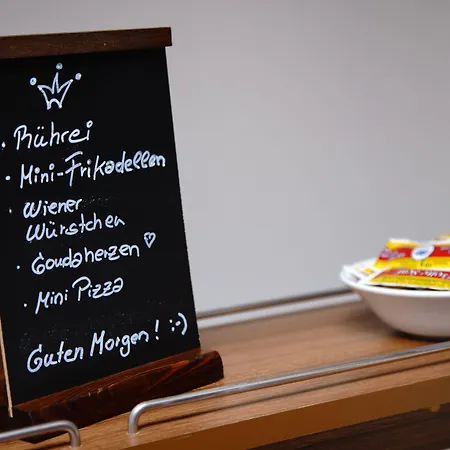 • Rührei
• Mini-Frikadellen
• Wiener
Würstchen
• Goudaherzen ♡
• Mini Pizza
Guten Morgen! :-)